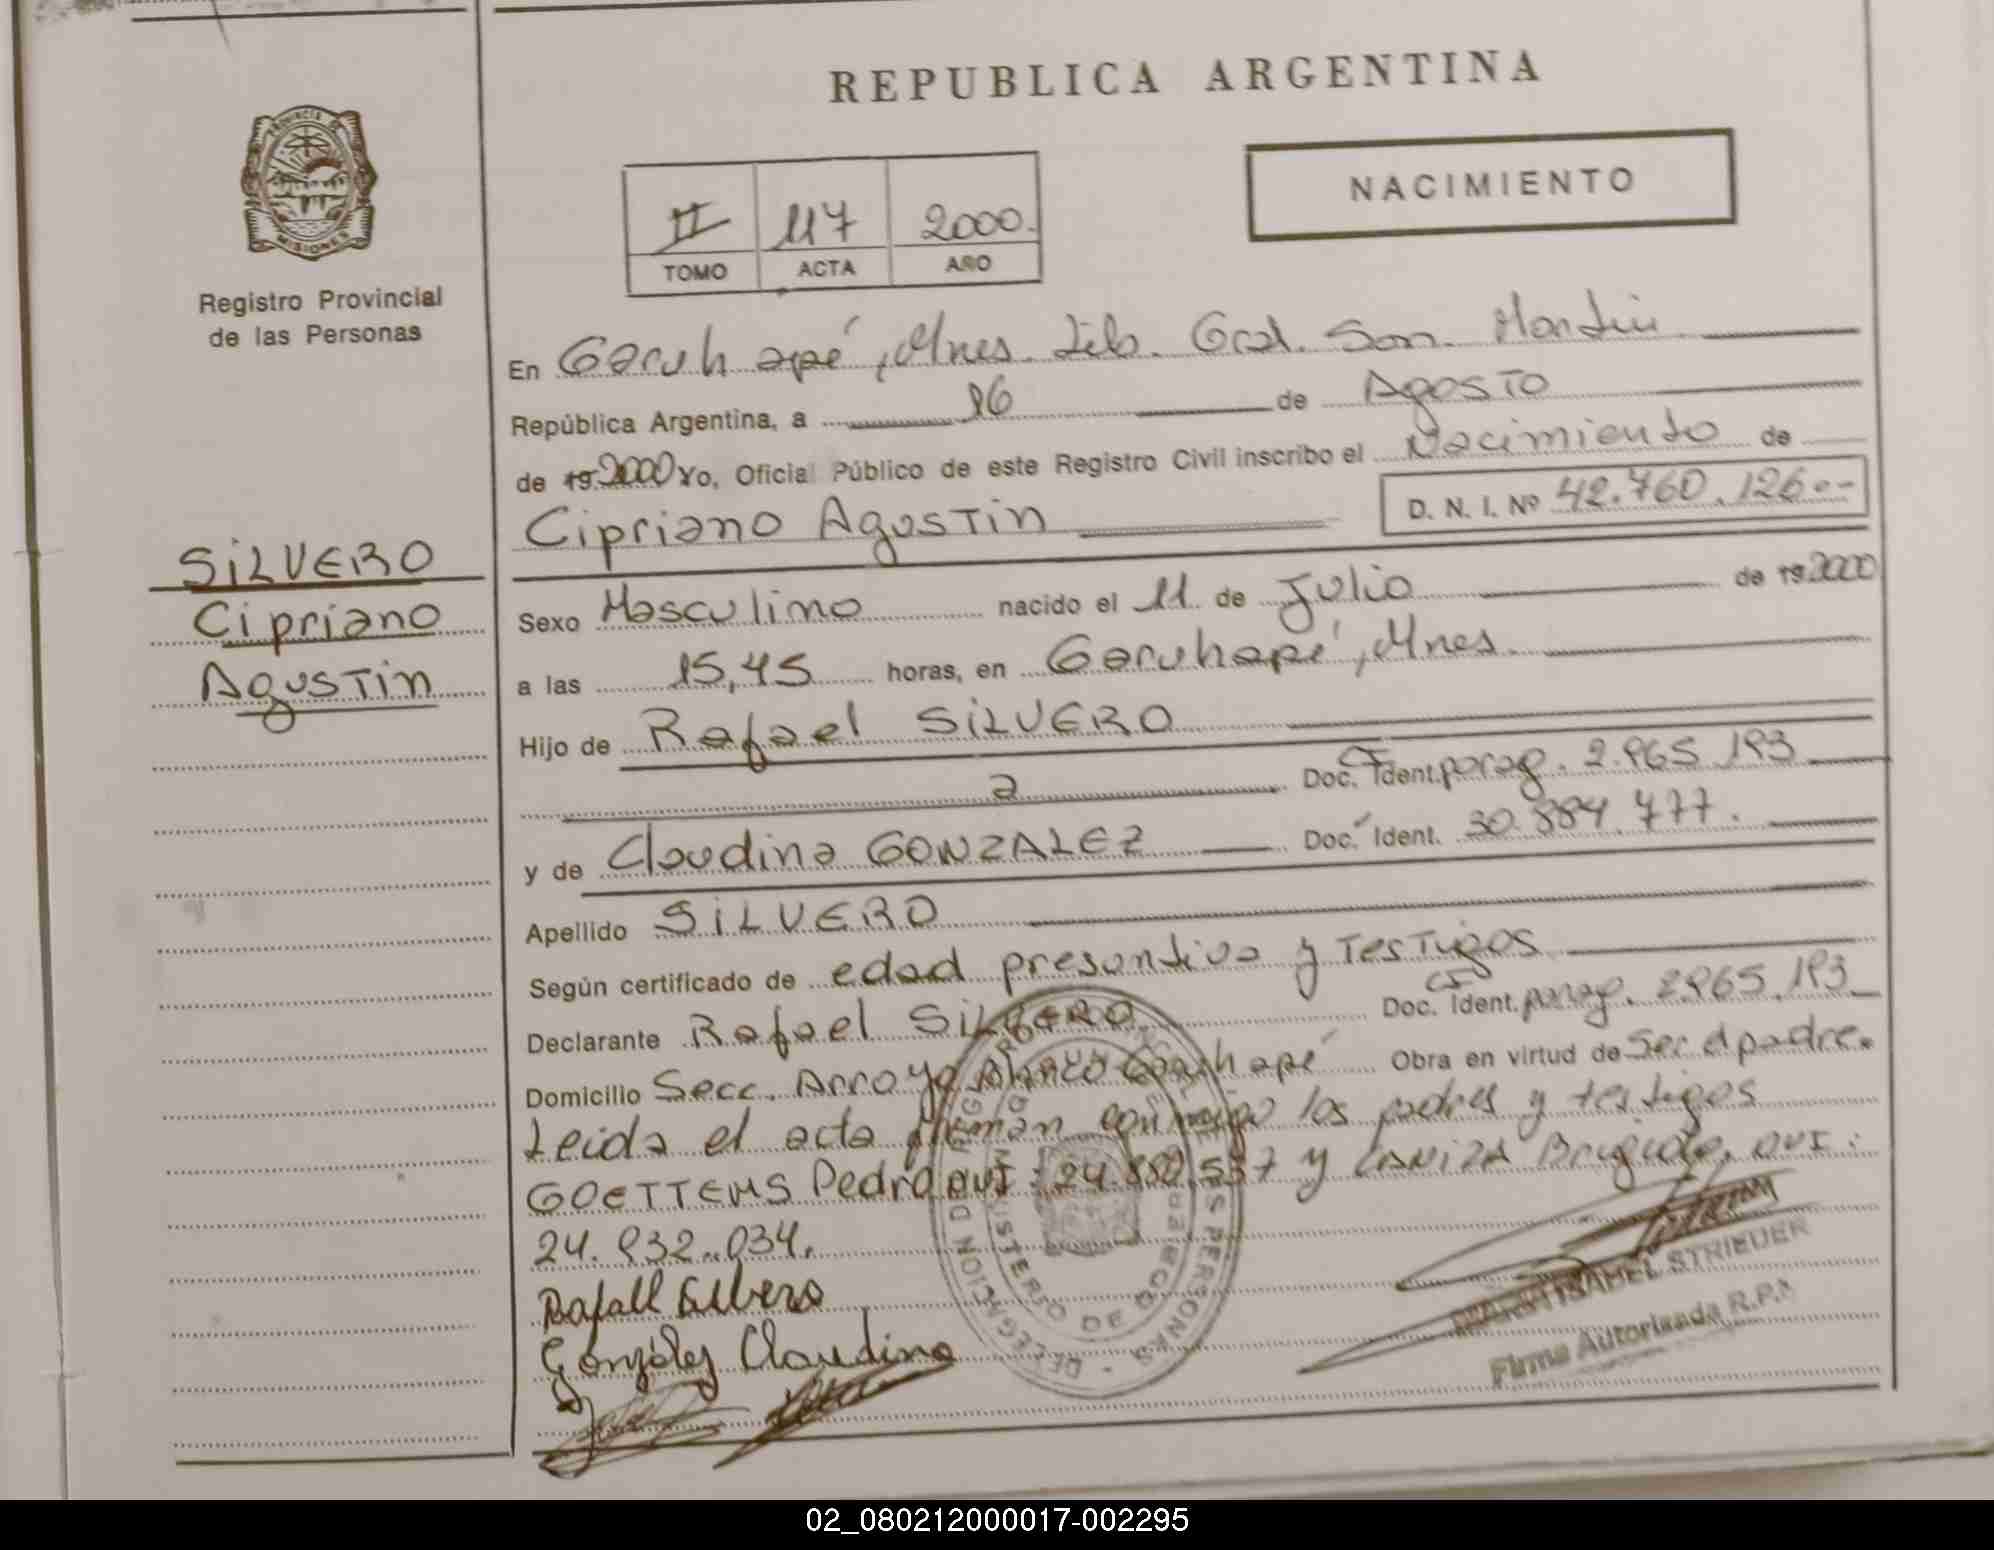 REPUBLICA ARGENTINA
PROVINCIA DE
MISIONES
Registro Provincial
de las Personas
NACIMIENTO
II 117 2000.
TOMO ACTA AÑO
En Garuhapé, Mnes. Lib. Gral. San. Martin
República Argentina, a 16 de Agosto
de 19 2000 Yo, Oficial Público de este Registro Civil inscribo el Nacimiento de
D. N. I. Nº 42.760.126.--
Cipriano Agustin
SILVERO
Cipriano
Agustin
Sexo Masculino nacido el 11 de Julio de 19 2000
a las 15,45 horas, en Garuhapé, Mnes.
Hijo de Rafael SILVERO
a Doc. Ident. parag. 2.965.193
y de Claudina GONZALEZ Doc. Ident. 30.884.477.
Apellido SILVERO
Según certificado de edad presuntiva y Testigos
Declarante Rafael SILVERO Doc. Ident. parag. 2.965.193
Domicilio Secc. Arroyo Blanco Garuhapé Obra en virtud de Ser el padre.
Leida el acta firman conmigo los padres y testigos
GOETTEMS Pedro DNI: 24.882.557 y CANIZA Brigido, DNI:
24.932.034.
Rafael Silvero
González Claudina
STRIEDER
Firma Autorizada R.P.P.
02_080212000017-002295